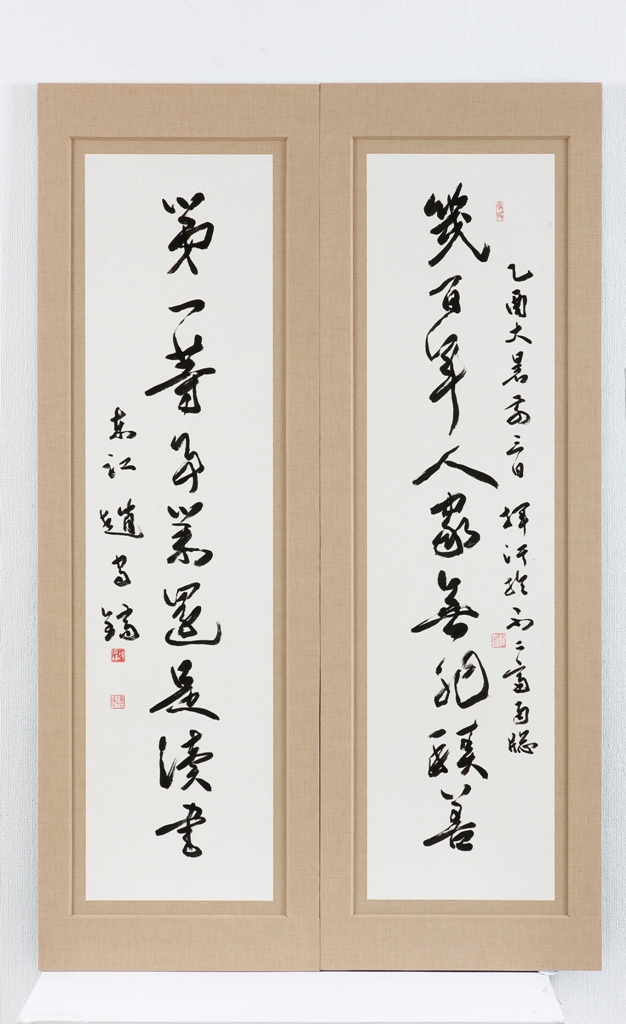 乙酉大暑前三日 揮汗於不二齋南牕
幾百年人家無非積善
第一等事業還是讀書
東江 趙守鎬